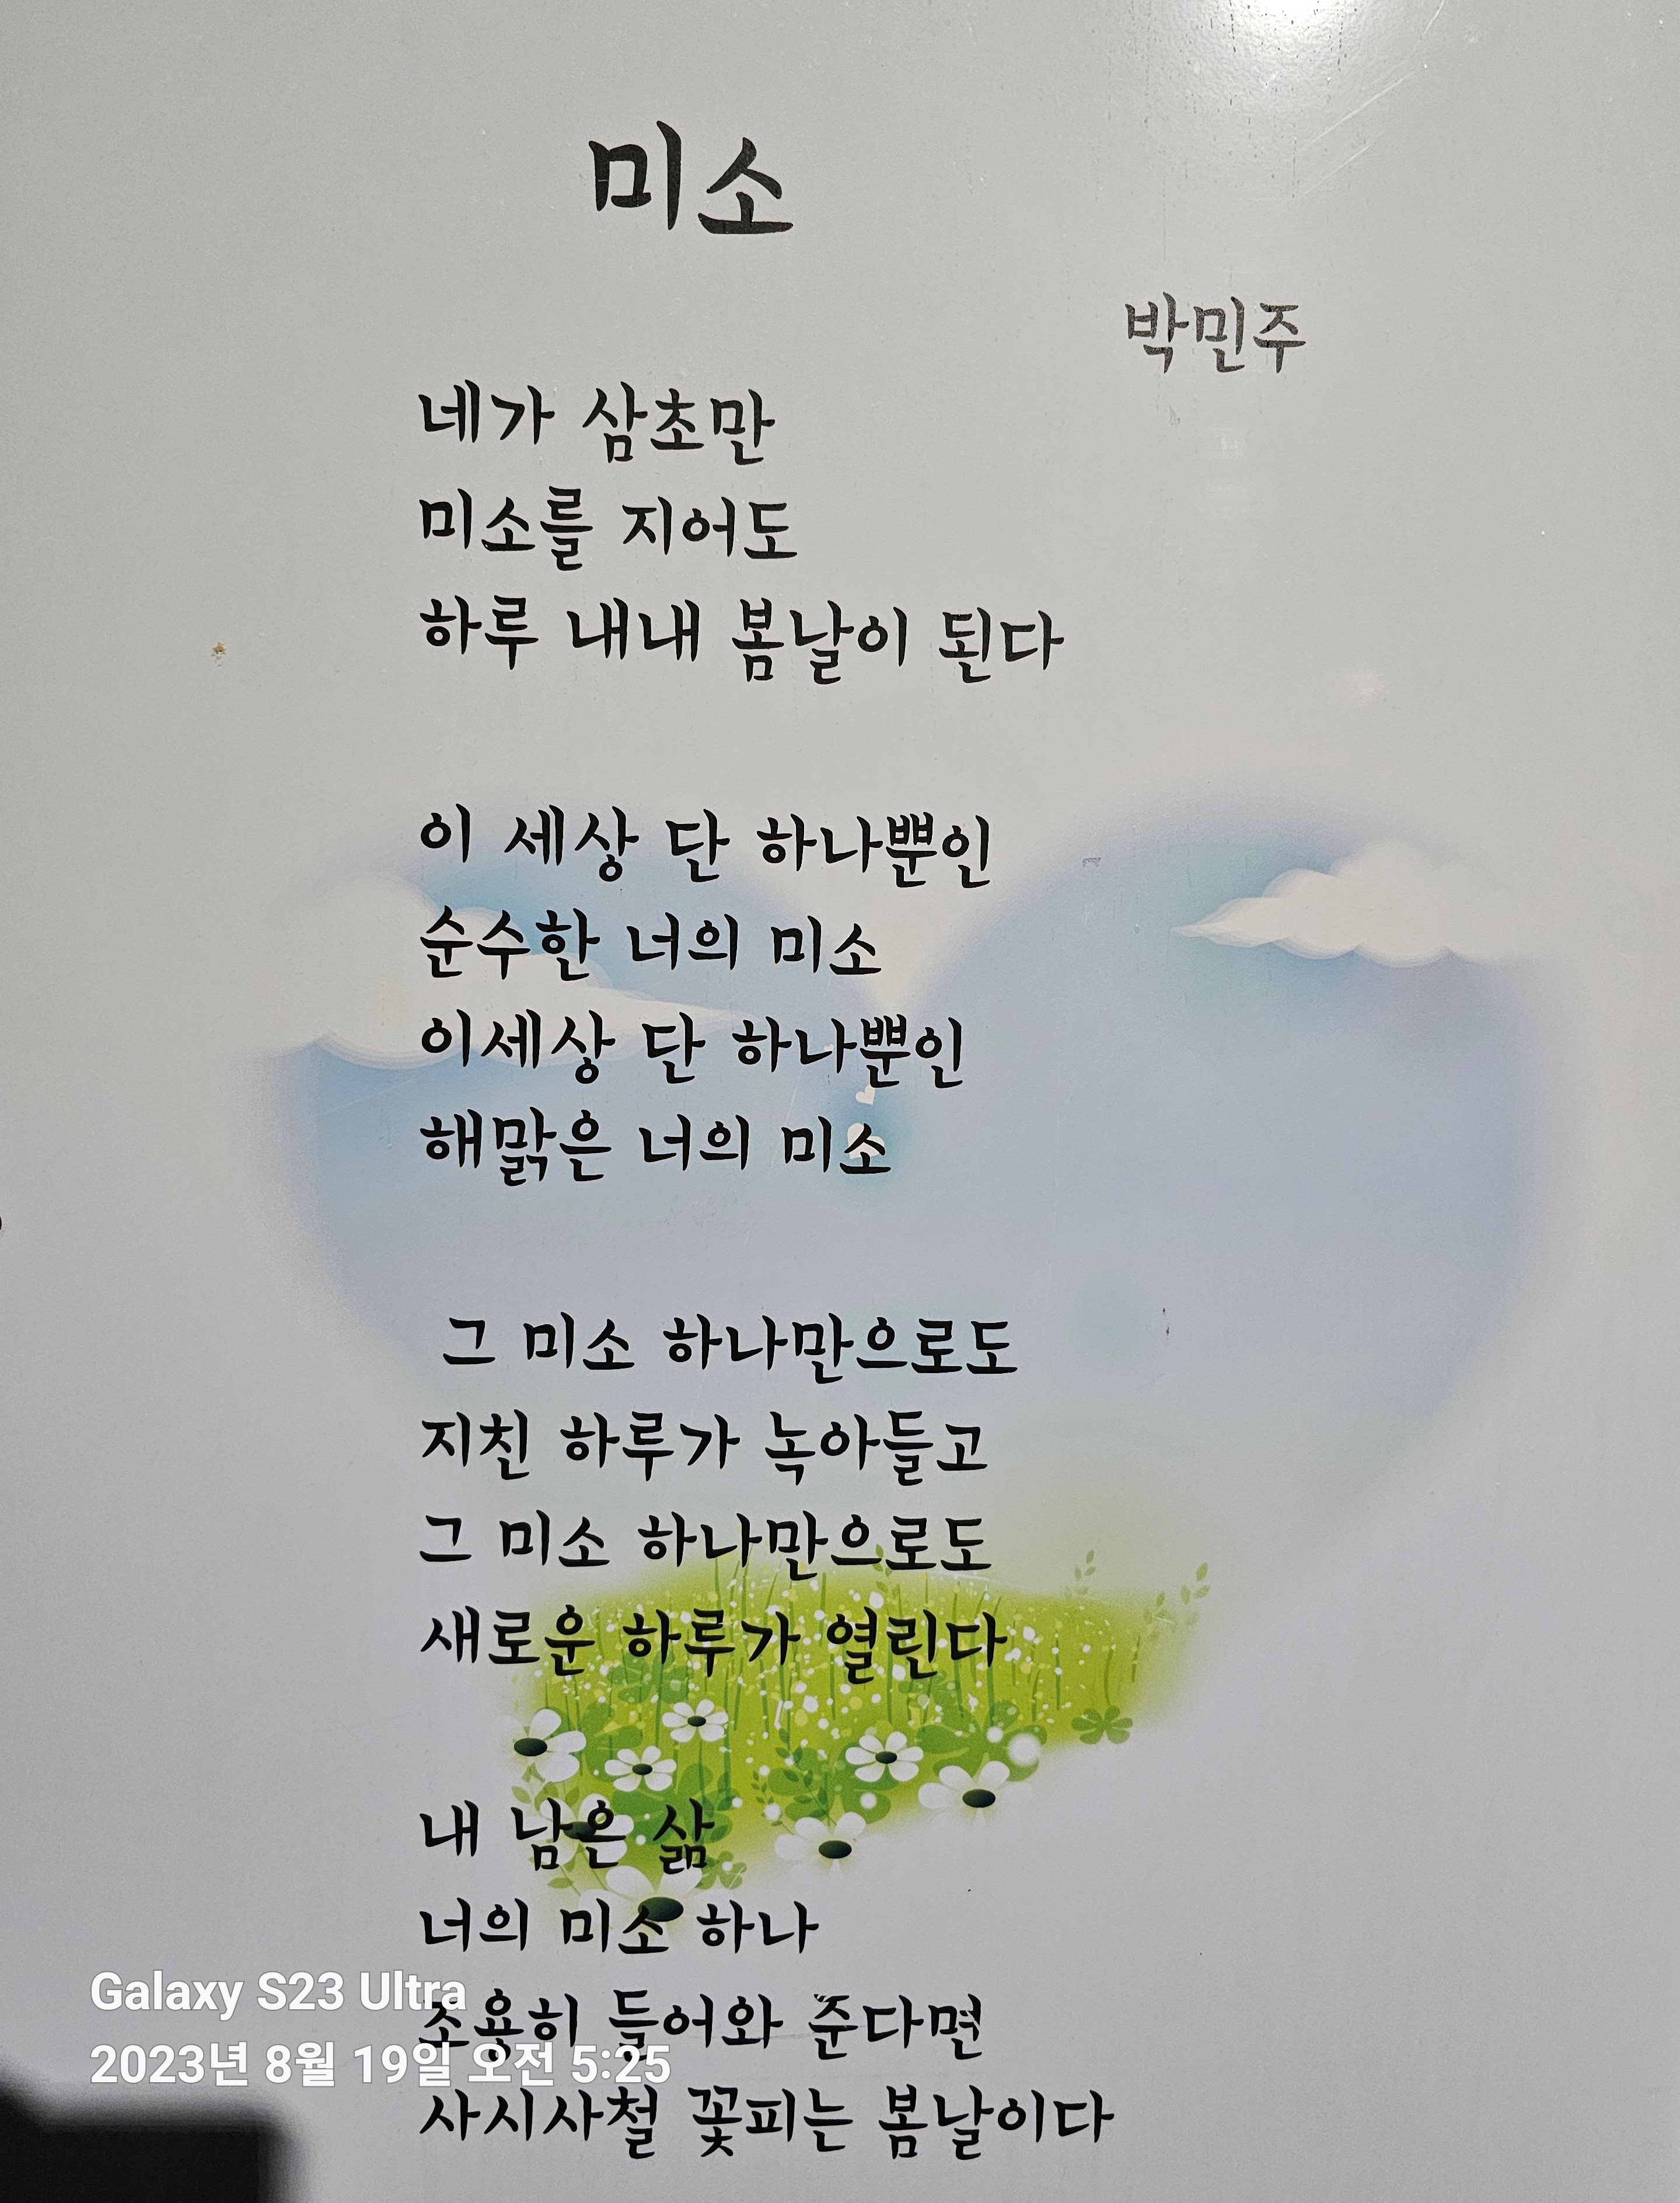 미소
박민주
네가 삼초만
미소를 지어도
하루 내내 봄날이 된다
이 세상 단 하나뿐인
순수한 너의 미소
이세상 단 하나뿐인
해맑은 너의 미소
그 미소 하나만으로도
지친 하루가 녹아들고
그 미소 하나만으로도
새로운 하루가 열린다
내 남은 삶
너의 미소 하나
Galaxy S23 Ultra
조용히 들어와 준다면
2023년 8월 19일 오전 5:25
사시사철 꽃피는 봄날이다